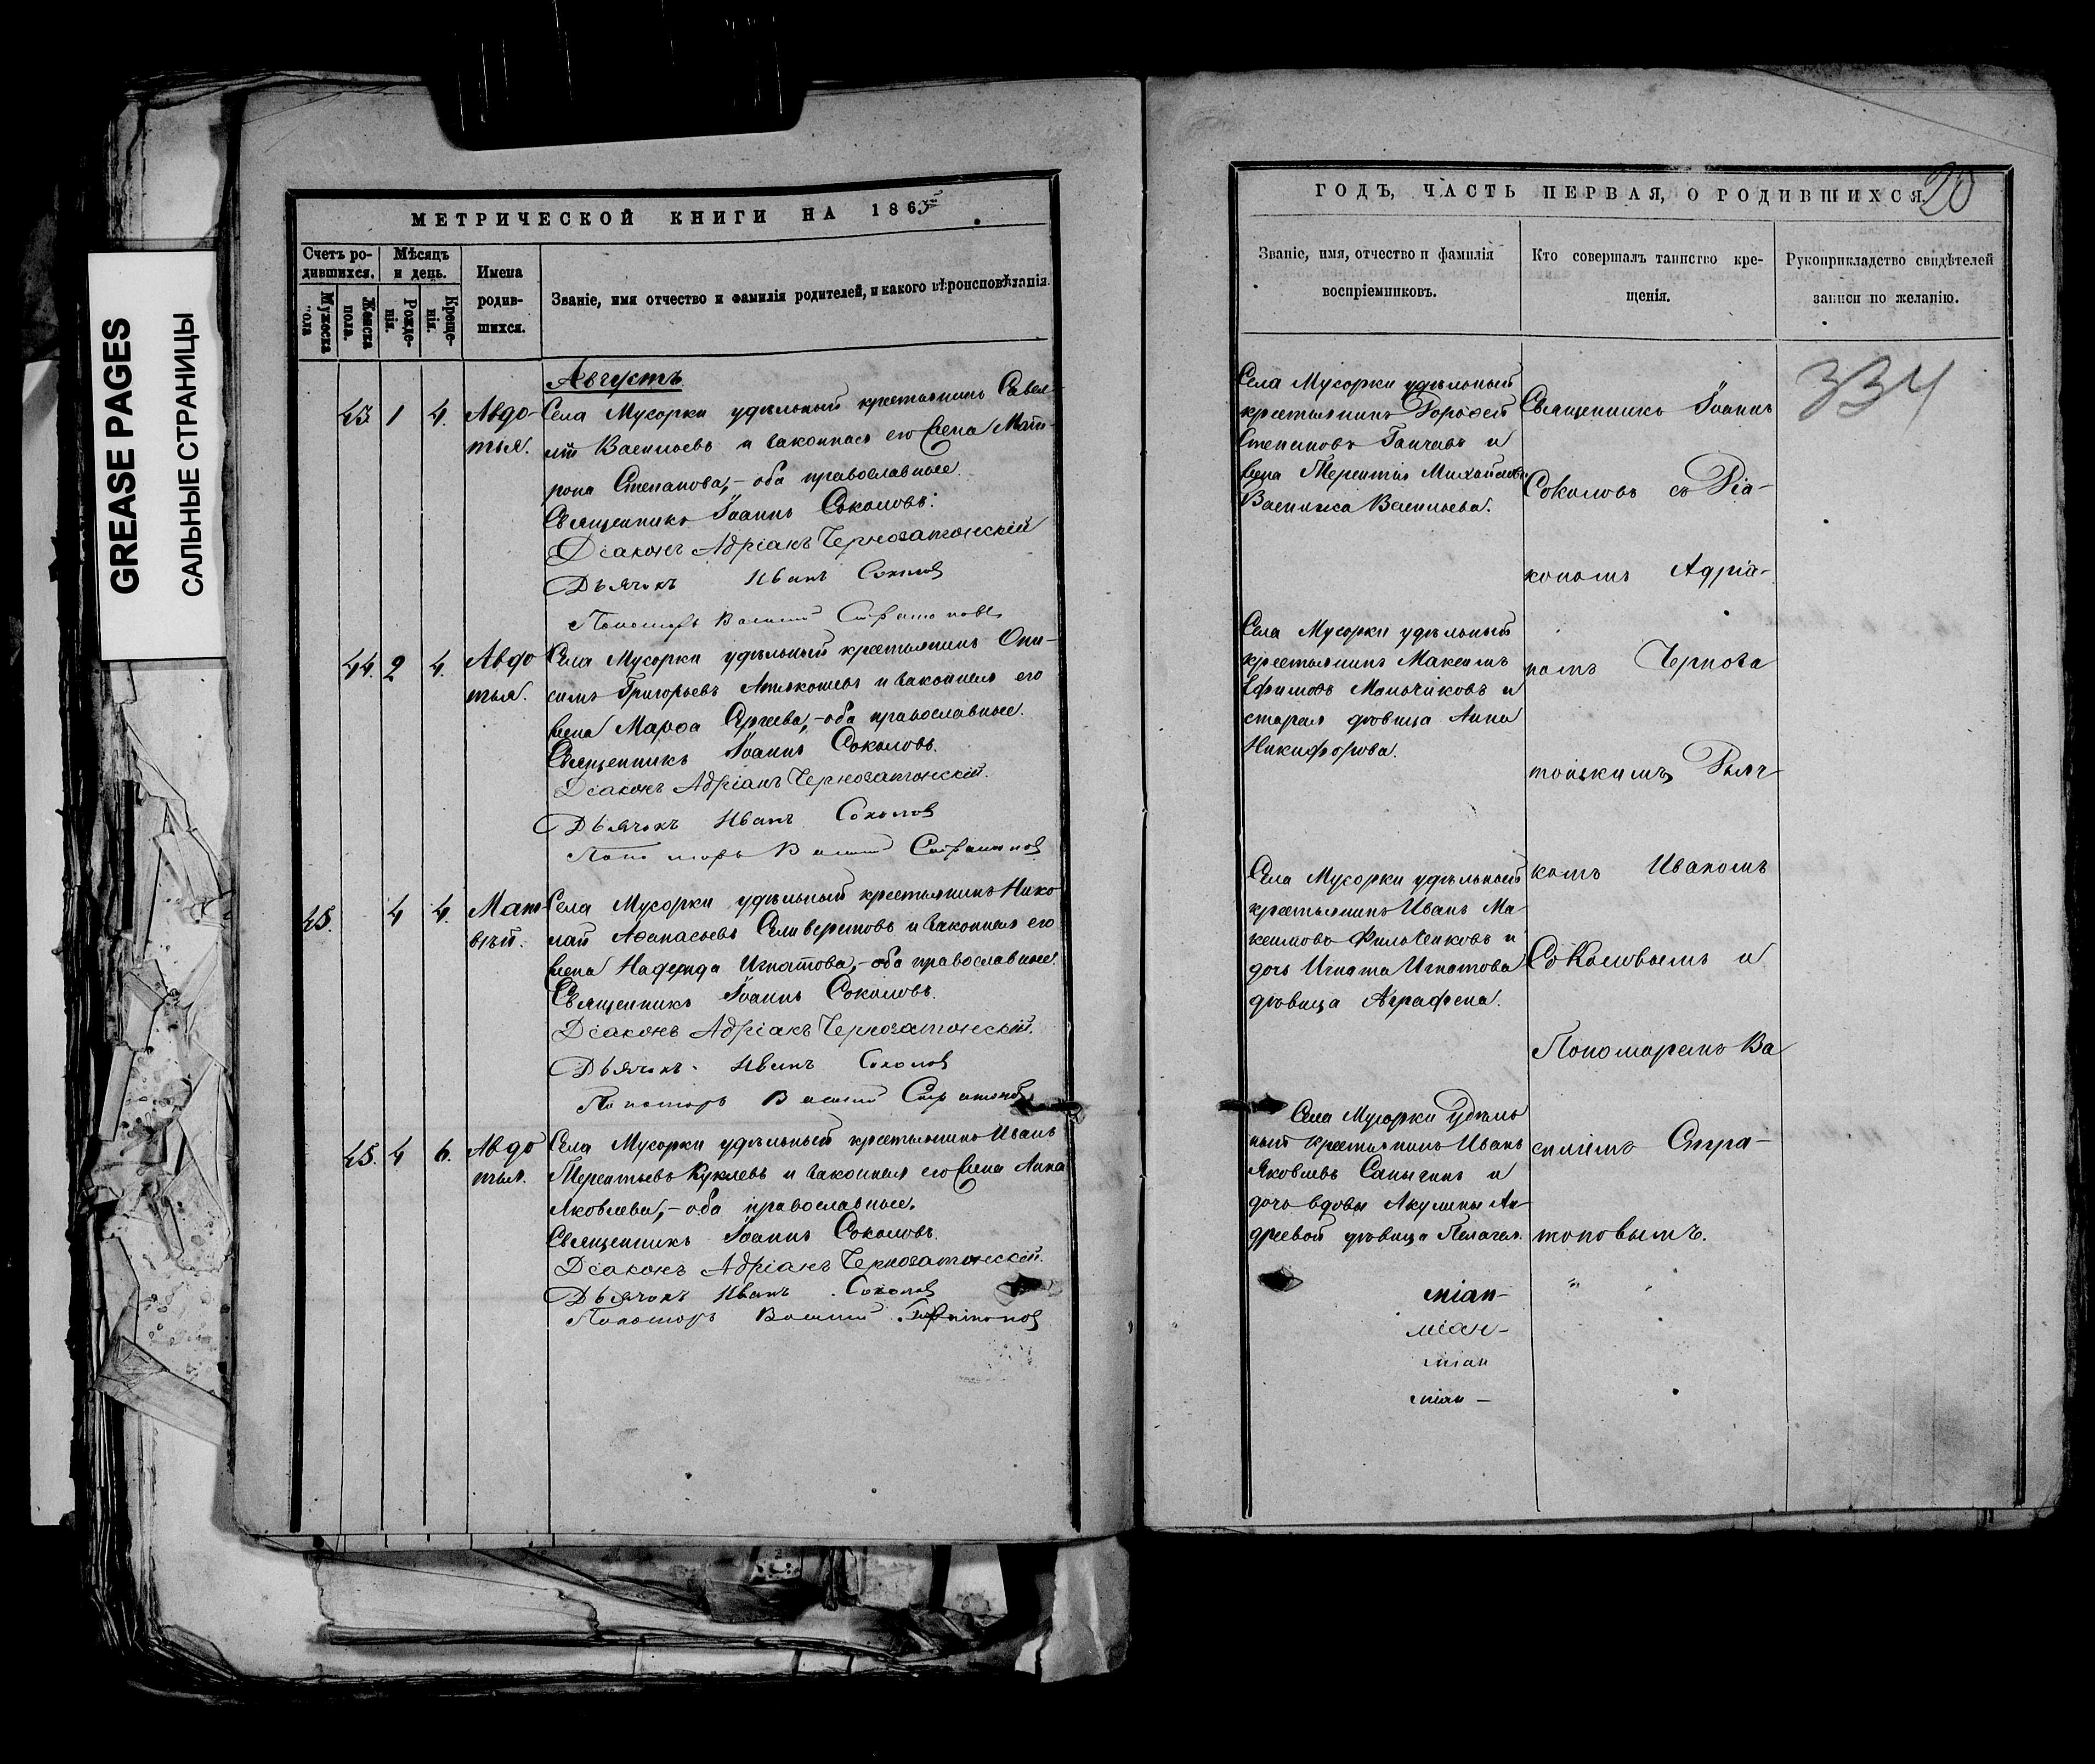 GREASE PAGES
САЛЬНЫЕ СТРАНИЦЫ
МЕТРИЧЕСКОЙ КНИГИ НА 1865
Счетъ ро-
дившихся.
Мужеска
пола
Женска
пола.
Мѣсяцъ
и день.
Рожде-
нія.
Креще-
нія.
Имена
родив-
шихся.
Званіе, имя отчество и фамилія родителей, и какого вѣроисповѣданія.
Августъ
43 1 4. Авдо-
тья.
Села Мусорки удѣльный крестьянинъ Савел-
ій Васильевъ и законная его жена Мат-
рона Степанова, – оба православные.
Священникъ Іоаннъ Соколовъ.
Діаконъ Адріанъ Черногатонскій
Дьячокъ Иванъ Соколов
Пономарь Василий Стратонов
44. 2 4. Авдо
тья.
Села Мусорки удѣльный крестьянинъ Они-
симъ Григорьевъ и законная его
жена Марѳа Сергѣева, – оба православные.
Священникъ Іоаннъ Соколовъ.
Діаконъ Адріанъ Черногатонскій.
Дьячокъ Иванъ Соколов
Пономарь Василий Стратонов
45. 4 4. Мат
вѣй.
Села Мусорки удѣльный крестьянинъ Нико
лай Аѳанасьевъ Селиверстовъ и законная его
жена Надежда Игнатова, – оба православные.
Священникъ Іоаннъ Соколовъ.
Діаконъ Адріанъ Черногатонскій.
Дьячокъ Иванъ Соколов
Пономарь Василий Стратонов
45. 4 6. Авдо
тья.
Села Мусорки удѣльный крестьянинъ Иванъ
Терентьевъ Куклевъ и законная его жена Анна
Яковлева, – оба православные.
Священникъ Іоаннъ Соколовъ.
Діаконъ Адріанъ Черногатонскій.
Дьячокъ Иванъ Соколов
Пономарь Василий Стратонов
ГОДЪ, ЧАСТЬ ПЕРВАЯ, О РОДИВШИХСЯ.
20
Званіе, имя, отчество и фамилія
воспріемниковъ.
Кто совершалъ таинство кре-
щенія.
Рукоприкладство свидѣтелей
записи по желанію.
334
Села Мусорки удѣльный
крестьянинъ Дороѳей
Степановъ и
жена Терентія Михайлова
Василиса Васильева.
Села Мусорки удѣльный
крестьянинъ Максимъ
Ефимовъ Мальчиковъ и
старая дѣвица Анна
Никифорова.
Села Мусорки удѣльный
крестьянинъ Иванъ Ма
ксимовъ Филоненковъ и
дочь Игната Игнатова
дѣвица Аграфена.
Села Мусорки удѣль
ный крестьянинъ Иванъ
Яковлевъ Сапыгинъ и
дочь вдовы Акулины Ан
дреевой дѣвица Пелагея.
Священникъ Іоаннъ
Соколовъ съ Діа-
кономъ Адріа-
номъ Чернога
тонскимъ, Дьяч-
комъ Иваномъ
Соколовымъ и
Пономаремъ Ва
силіемъ Стра-
тоновымъ.